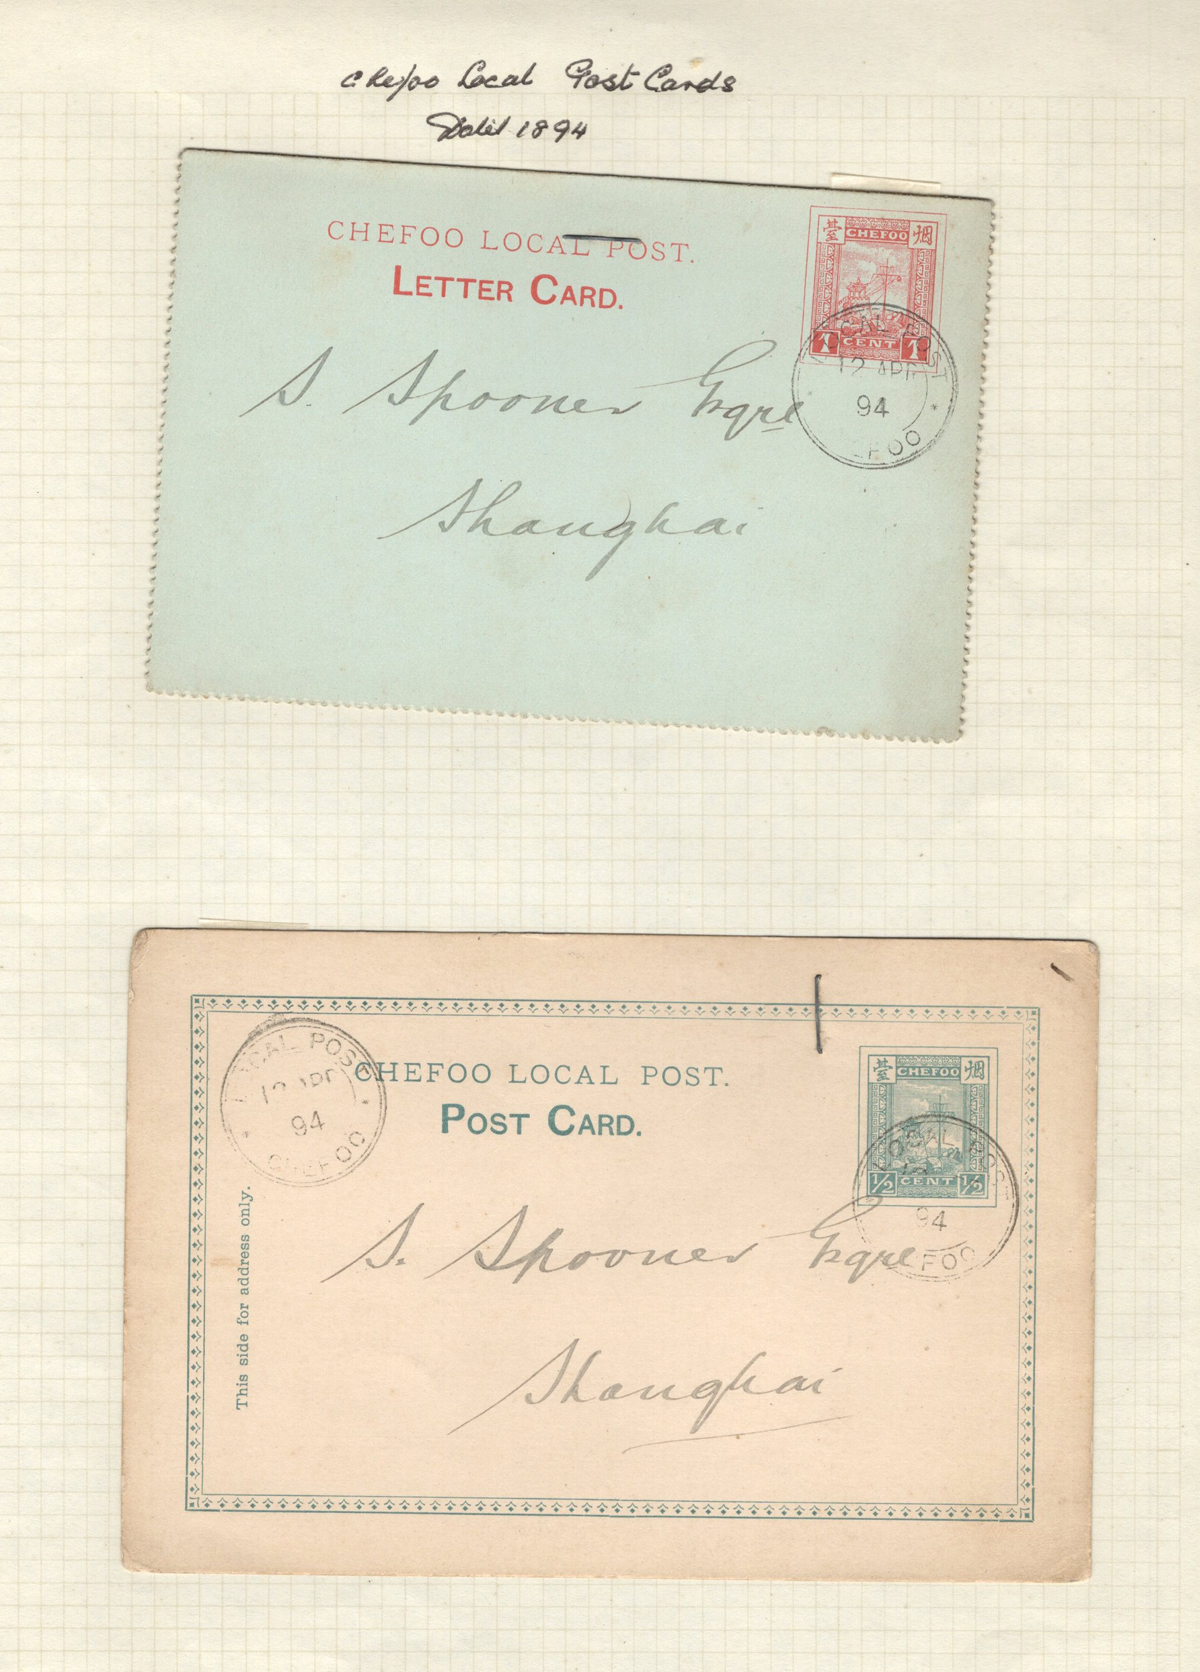 Chefoo Local Post Cards
Dated 1894
CHEFOO LOCAL POST.
LETTER CARD.
臺 CHEFOO 烟
1 CENT 1
LOCAL POST
12 APR
94
S. Spooner Esqre
Shanghai
CHEFOO LOCAL POST.
POST CARD.
臺 CHEFOO 烟
½ CENT ½
LOCAL POST
12 APR
94
CHEFOO
LOCAL POST
94
This side for address only.
S. Spooner Esqre
Shanghai